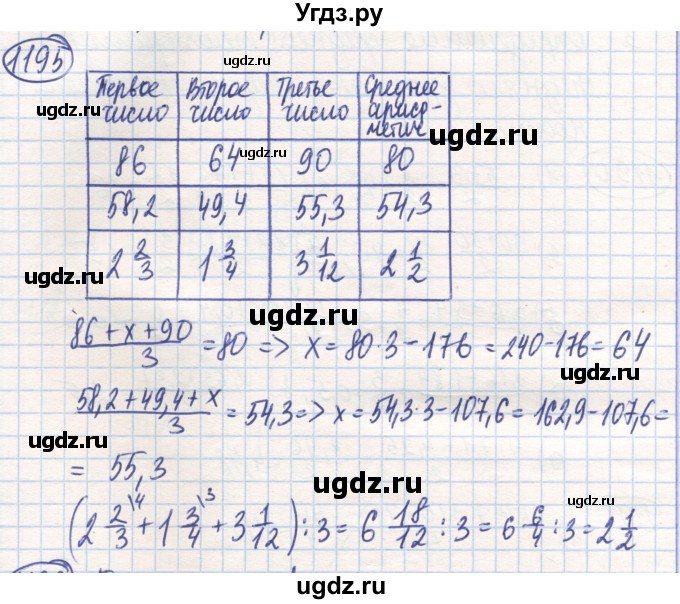 Угдз.ру
1195
Первое число | Второе число | Третье число | Среднее арифметич
86 | 64 | 90 | 80
58,2 | 49,4 | 55,3 | 54,3
2 2/3 | 1 3/4 | 3 1/12 | 2 1/2
(86 + x + 90)/3 = 80 => x = 80·3 - 176 = 240 - 176 = 64
(58,2 + 49,4 + x)/3 = 54,3 => x = 54,3·3 - 107,6 = 162,9 - 107,6 =
= 55,3
(2 2/3 \4 + 1 3/4 \3 + 3 1/12) : 3 = 6 18/12 : 3 = 6 6/4 : 3 = 2 1/2
ugdz.ru
ugdz.ru
ugdz.ru
ugdz.ru
ugdz.ru
ugdz.ru
ugdz.ru
ugdz.ru
ugdz.ru
ugdz.ru
ugdz.ru
ugdz.ru
ugdz.ru